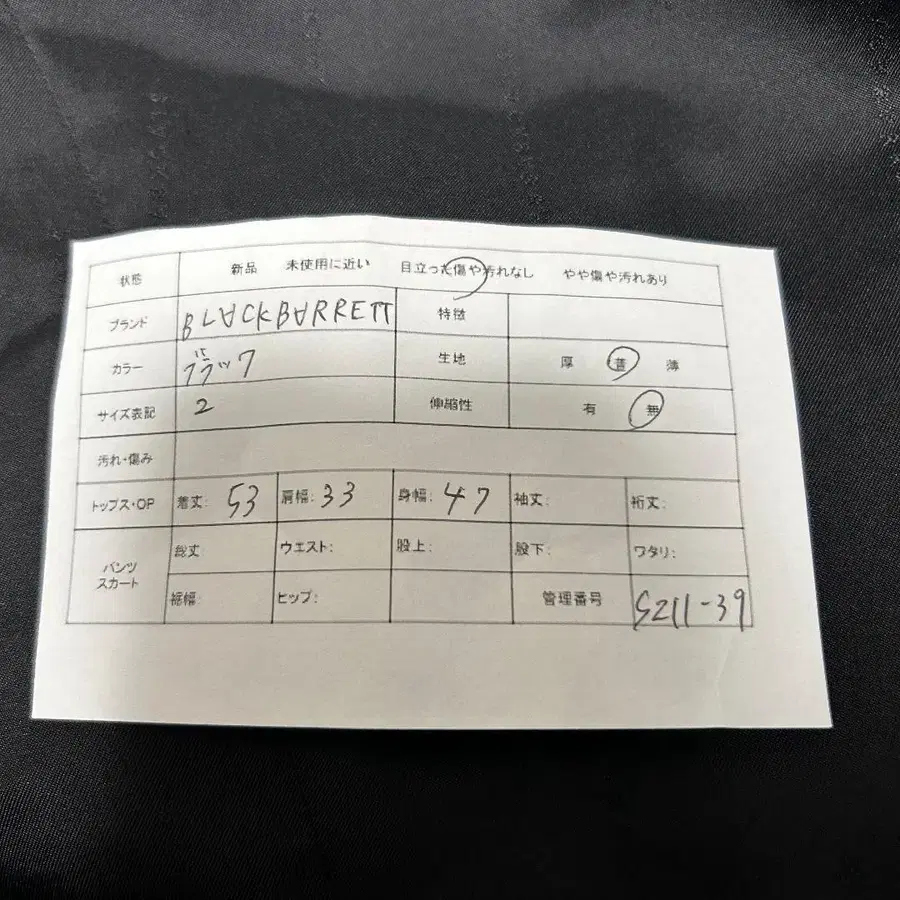 状態 新品 未使用に近い 目立った傷や汚れなし やや傷や汚れあり
ブランド BLACKBARRETT 特徴
カラー ブラック 生地 厚 普 薄
サイズ表記 2 伸縮性 有 無
汚れ・傷み
トップス・OP 着丈: 53 肩幅: 33 身幅: 47 袖丈: 裄丈:
パンツ スカート 総丈: ウエスト: 股上: 股下: ワタリ:
裾幅: ヒップ: 管理番号 S211-39